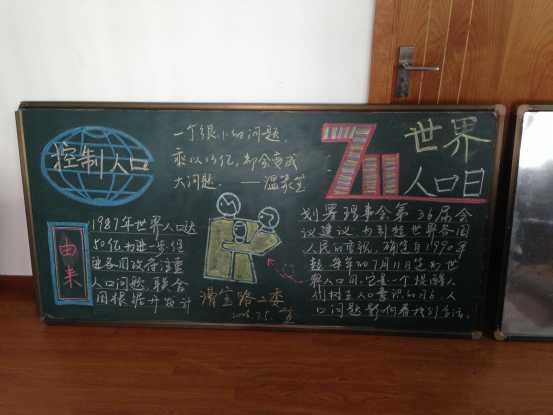 控制人口
一个很小的问题,
乘以13亿,都会变成
大问题. ——温家宝
7.11 世界
人口日
由来
1987年世界人口达
50亿为进一步促
进各国政府注重
人口问题,联合
国根据开发计
划署理事会第36届会
议建议,为引起世界各国
人民的重视,确定自1990年
起每年的7月11日定为世
界人口日,它是一个提醒人
们树立人口意识的日子,人
口问题影响着
路二委